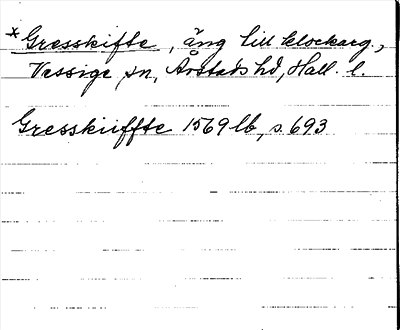 *Gresskifte, äng till klockarg.,
Vessige sn, Årstads hd, Hall. l.
Gresskiiffte 1569 lb, s. 693